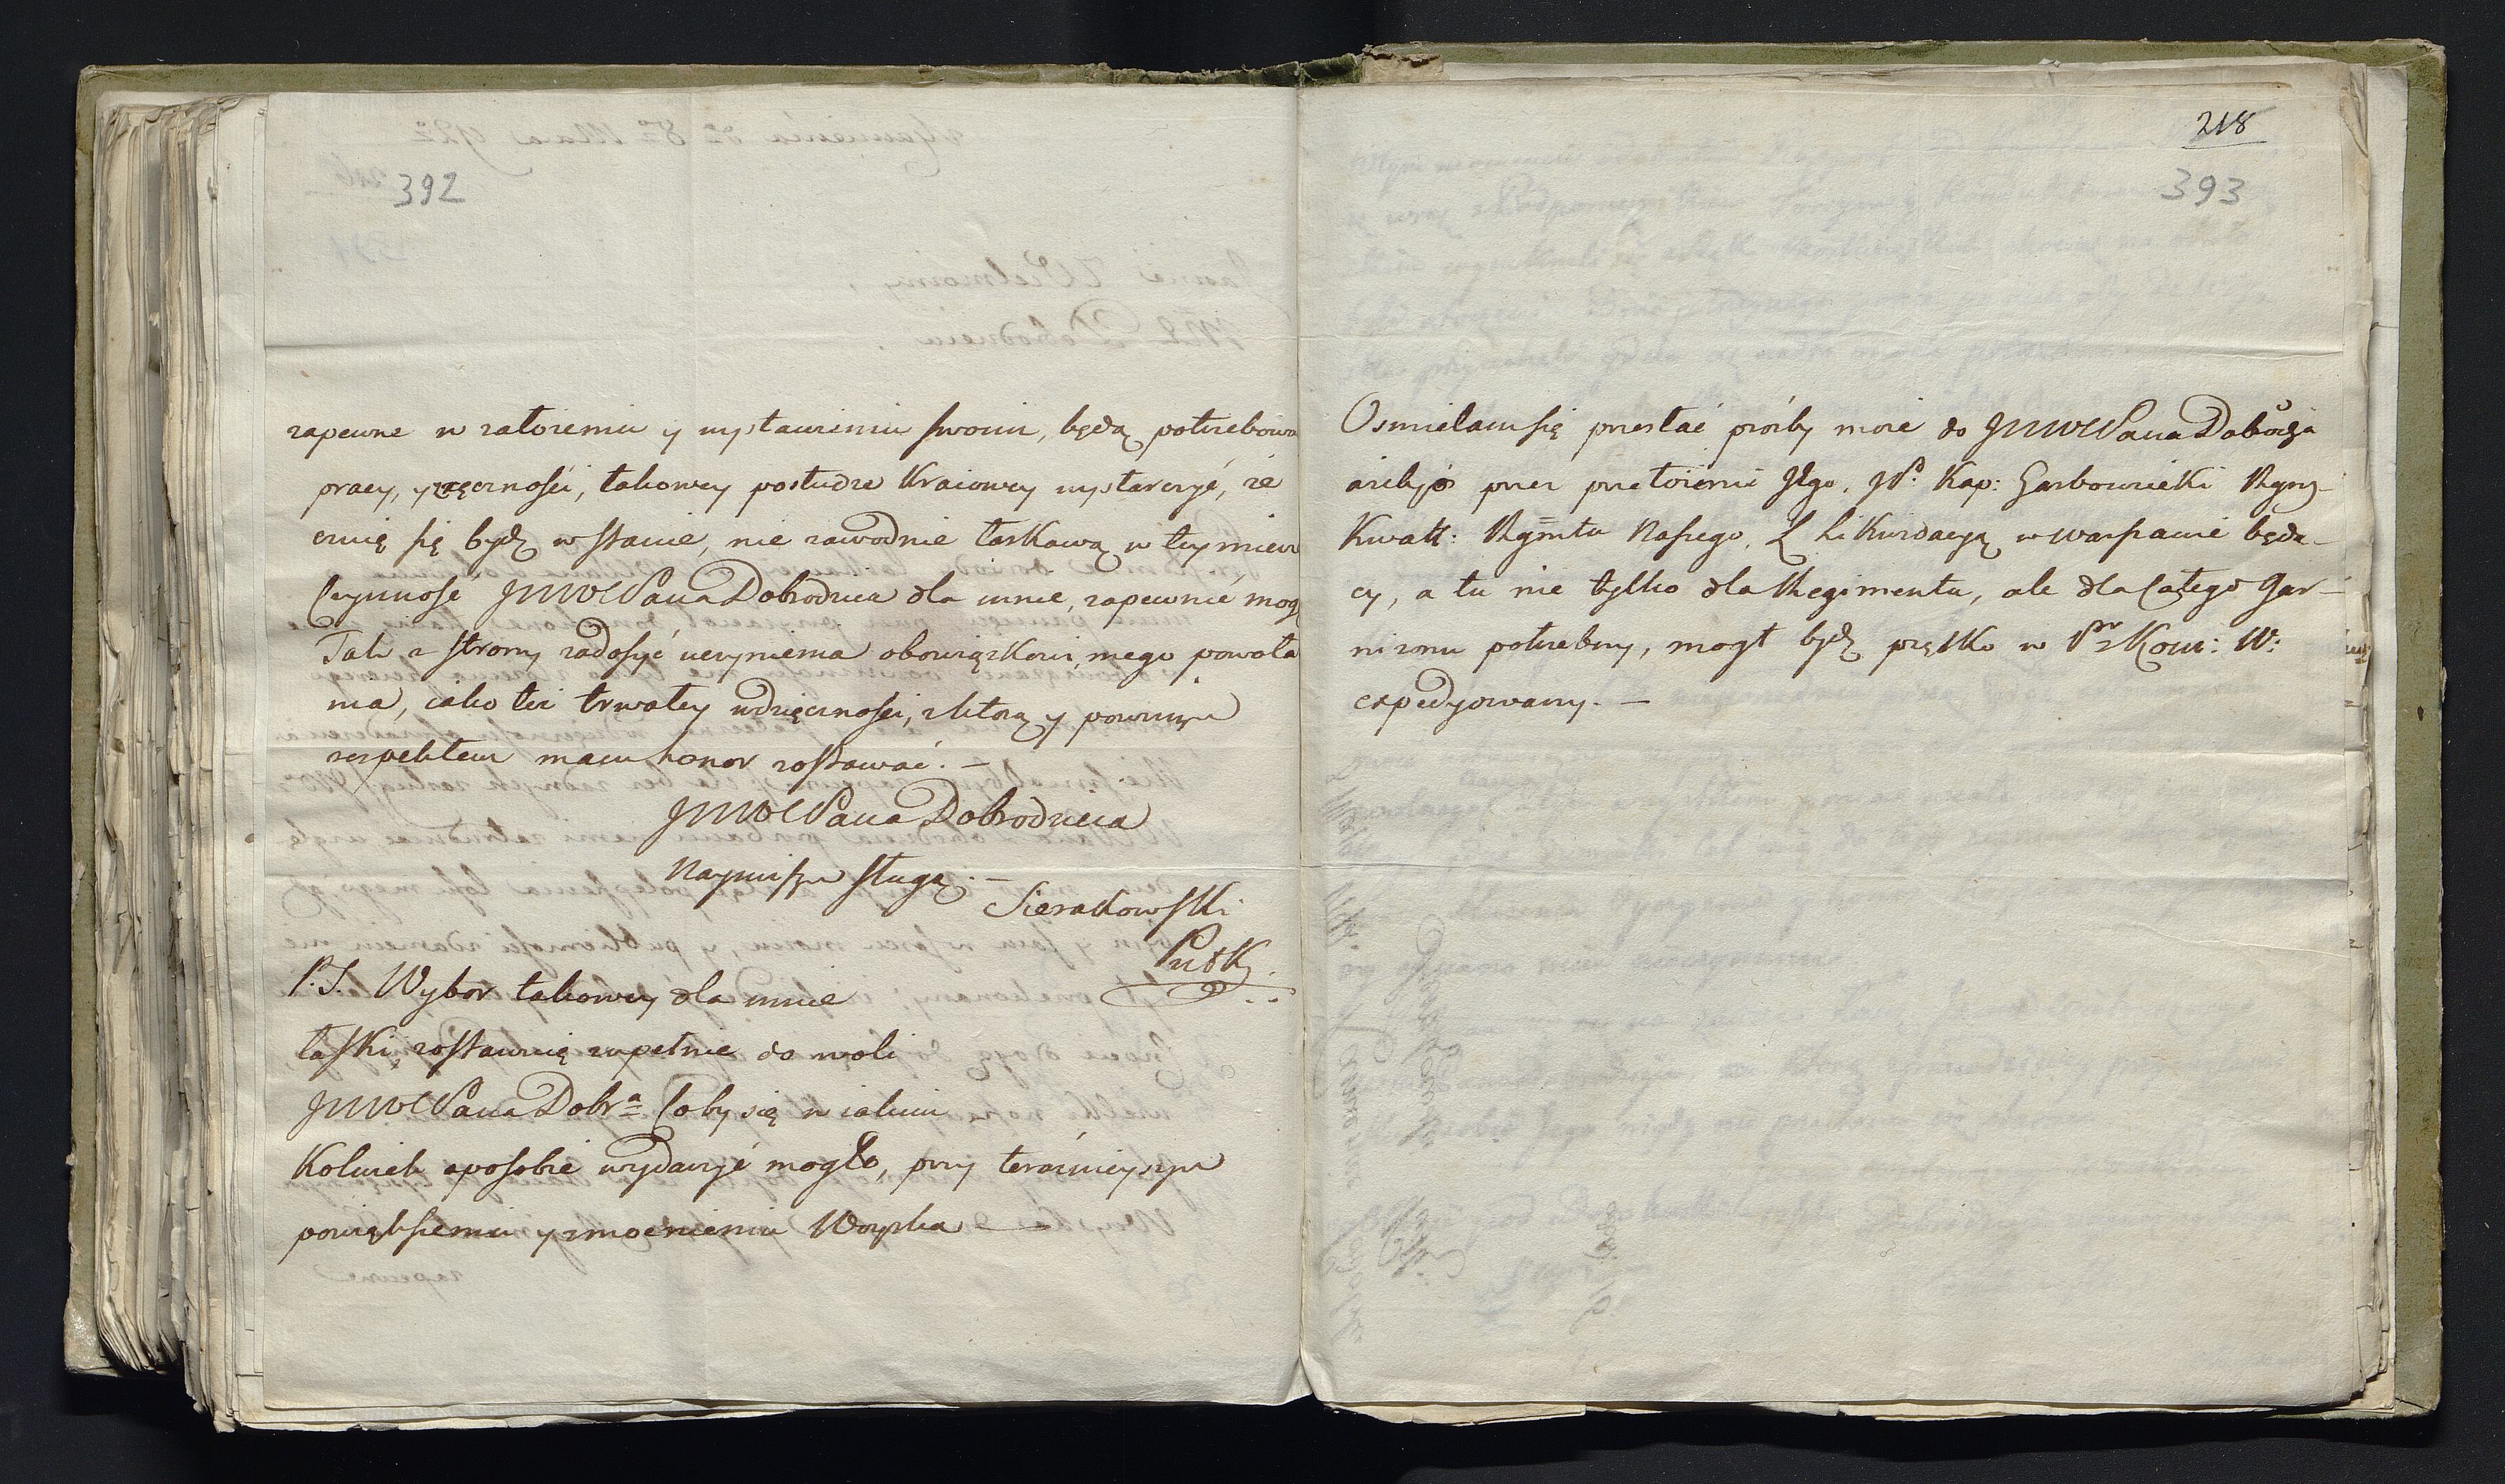 392
zapewne w założeniu y wystawieniu swoim, będą potrzebowa
pracy, y zręczności, takowey posłudze kraiowey wystarczyć, że
cznię się bydź w stanie, nie zawodnie łaskawą w tey mierz
czynnose JWWPana Dobrodziea dla mnie, zapewnić mog
Tak z strony zadosyć uczynienia obowiązkowi mego powoła
nia, iako też trwałey wdzięczności, z którą y powinnym
respektem mam honor zostawać. —
JWWPana Dobrodzieia
Nayniższym sługą. —
Sierakowski
Putk
P.S. Wybor takowey dla mnie
łaski, zostawuię zupełnie do woli
JWWPana Dobra Coby się w iakim
kolwiek sposobie wydarzyć mogło, przy teraźnieyszym
powiększeniu y zmocnieniu Woyska —
218
393
Osmielam się przesłać prośby moie do JWWPana Dobdzja
ażeby przez przełożenie Jego, JP. Kap: Garbowiecki Rgmz
Kwatt: Rgmtu Naszego, z Likwidacyą w Warszawie będą-
cy, a tu nie tylko dla Regimentu, ale dla Całego Gar-
nizonu potrzebny, mogł bydź prętko w Prz Kom: W:
expedyowany. —